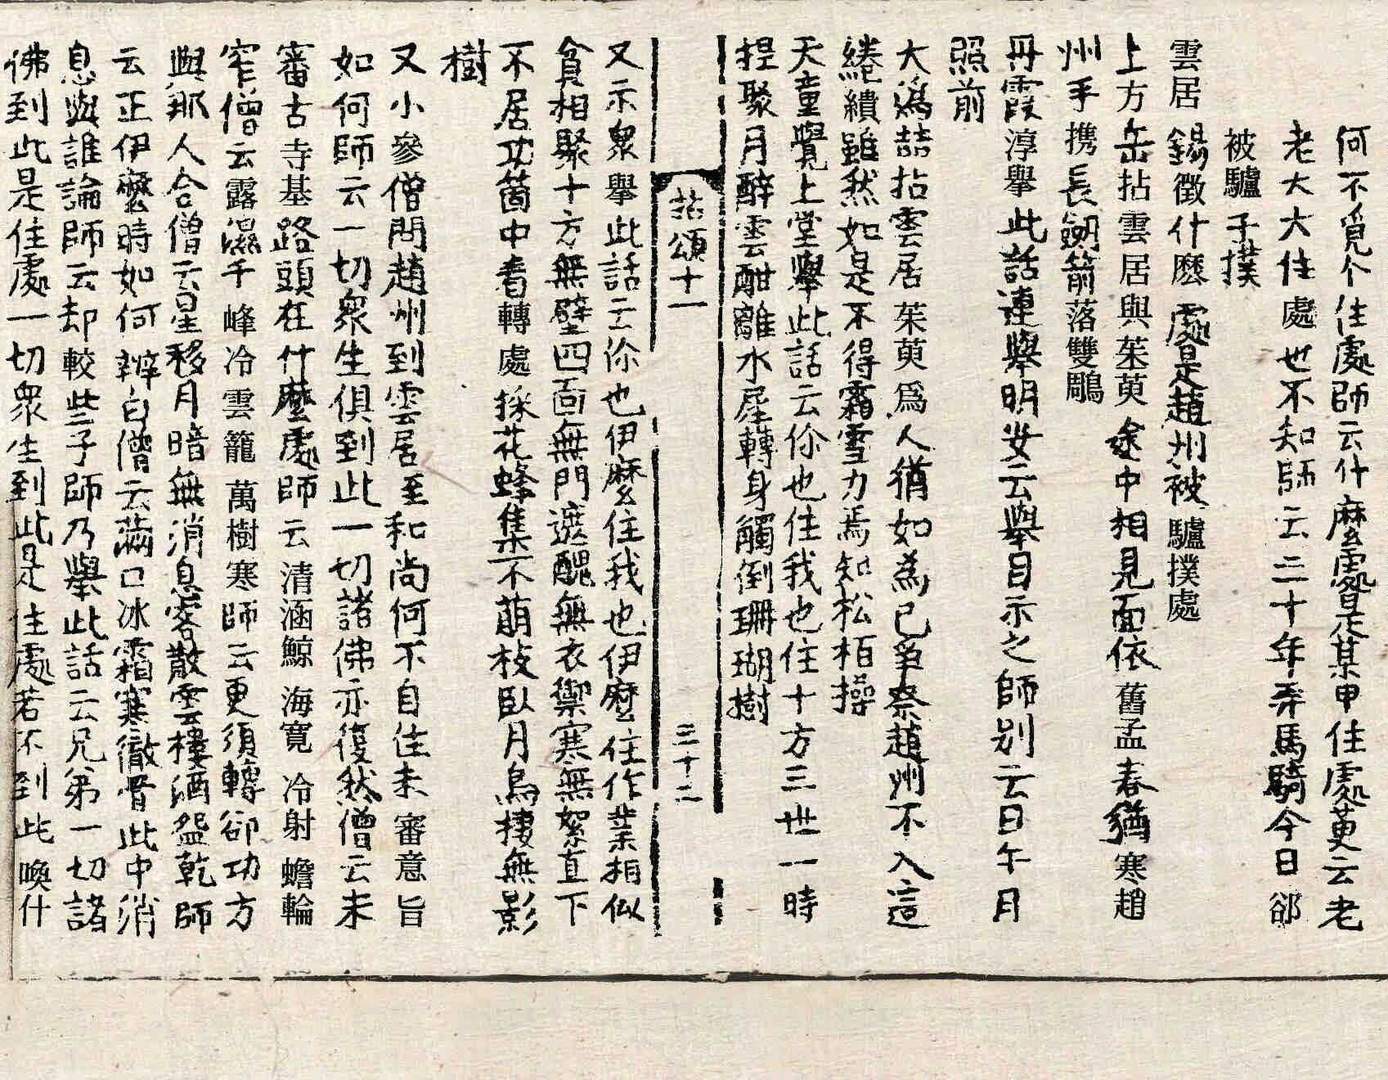 何不覓个住處師云什麽處是某甲住處萸云老
老大大住處也不知師云三十年弄馬騎今日郤
被驢子撲
雲居錫徵什麽處是趙州被驢撲處
上方岳拈雲居與茱萸途中相見面依舊孟春猶寒趙
州手携長劒箭落雙鵰
丹霞淳舉此話連舉明安云舉目示之師別云日午月
照前
大潙喆拈雲居茱萸爲人猶如爲已爭柰趙州不入這
綣繢雖然如是不得霜雪力焉知松栢操
天童覺上堂舉此話云你也住我也住十方三世一時
捏聚月醉雲酣離水犀轉身觸倒珊瑚樹
拈頌十一
三十二
又示衆舉此話云你也伊麽住我也伊麽住作業相似
貪相聚十方無壁四面無門遮醜無衣禦寒無絮直下
不居功箇中看轉處採花蜂集不萠枝臥月鳥棲無影
樹
又小參僧問趙州到雲居至和尚何不自住未審意旨
如何師云一切衆生俱到此一切諸佛亦復然僧云未
審古寺基路頭在什麽處師云清涵鯨海寛冷射蟾輪
窄僧云露濕千峰冷雲籠萬樹寒師云更須轉卻功方
與那人合僧云星移月暗無消息客散雲樓酒盌乾師
云正伊麽時如何辨白僧云滿口冰霜寒徹骨此中消
息與誰論師云却較些子師乃舉此話云兄弟一切諸
佛到此是住處一切衆生到此是住處若不到此喚什